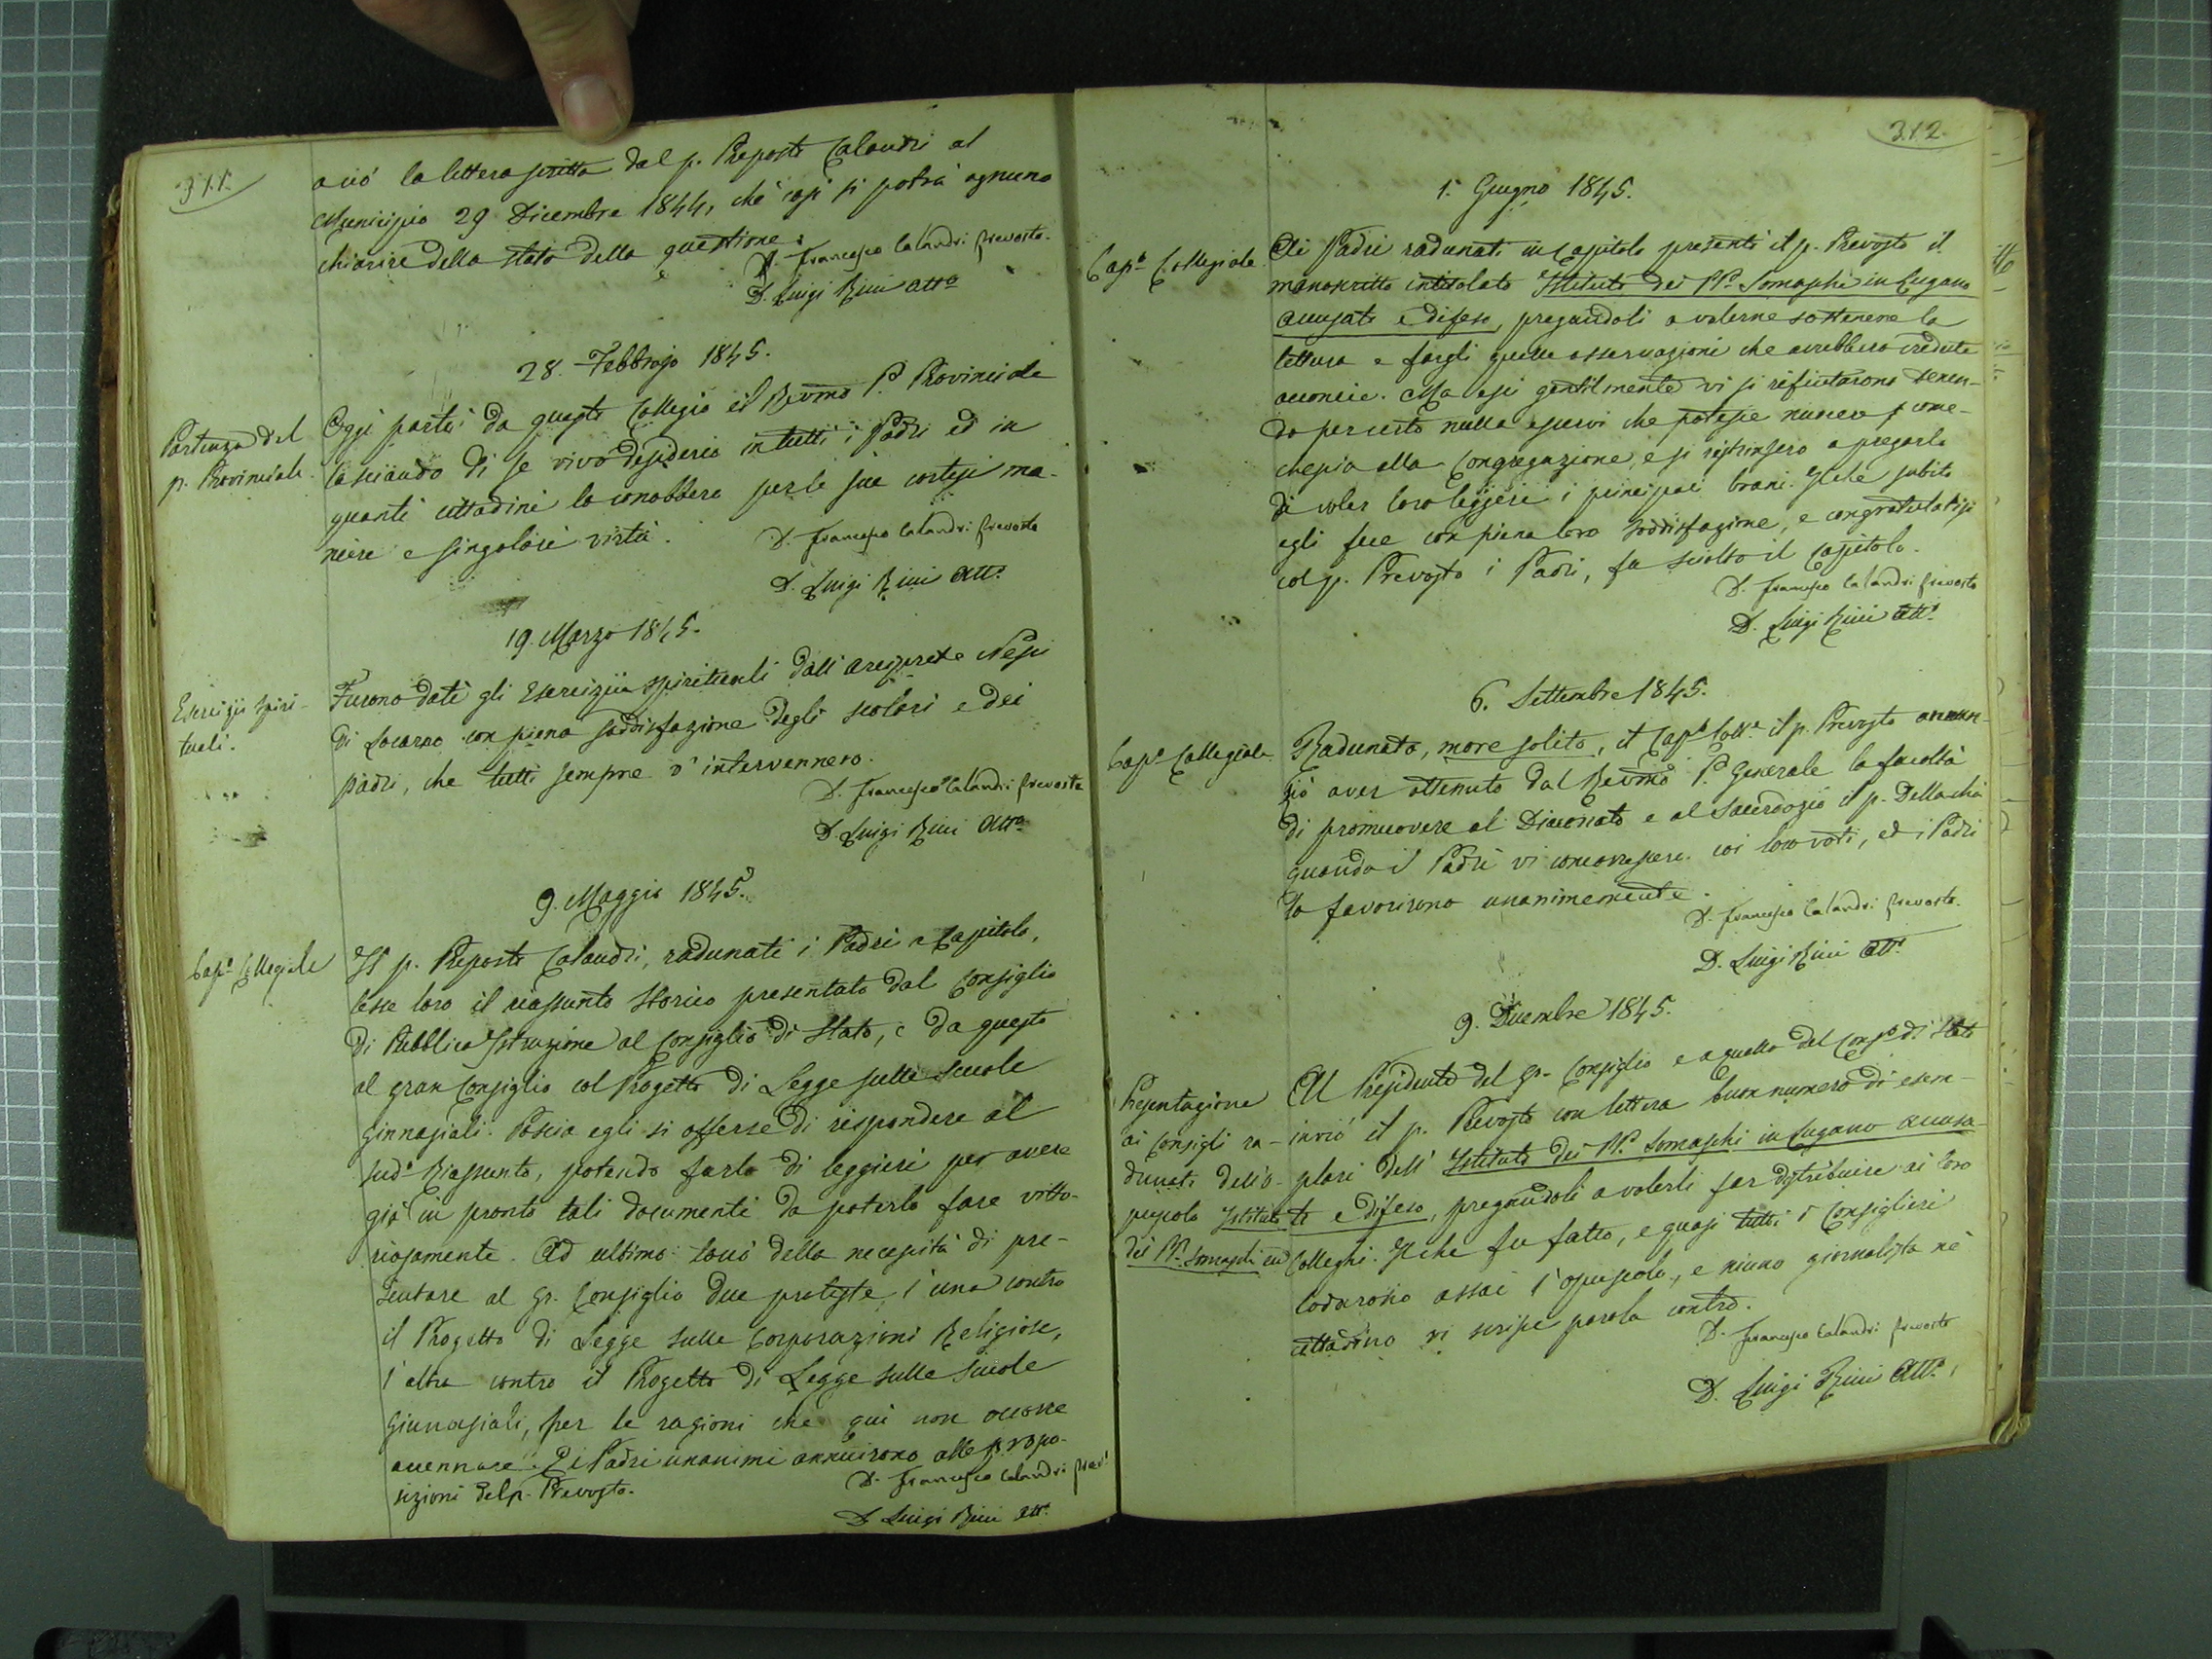 311.
a ciò la lettera scritta dal p. Preposto Calandri al
Municipio 29 Dicembre 1844, chè così si potrà ognuno
chiarire dello stato della questione.
D. Francesco Calandri prevosto.
D. Luigi Rini atto
28. Febbrajo 1845.
Partenza del
p. Provinciale.
Oggi partì da questo Collegio il Revmo P. Provinciale
lasciando di se vivo desiderio in tutti i Padri ed in
quanti cittadini lo conobbero per le sue cortesi ma-
niere e singolari virtù.
D. Francesco Calandri prevosto
D. Luigi Rini Atto
19. Marzo 1845.
Esercizii Spiri-
tuali.
Furono dati gli Esercizii spirituali dall'arciprete Nessi
di Locarno con piena soddisfazione degli scolari e dei
padri, che tutti sempre v'intervennero.
D. Francesco Calandri prevosto
D. Luigi Rini Atto
9. Maggio 1845.
Capo Collegiale
Il p. Preposto Calandri, radunati i Padri a Capitolo,
lesse loro il riassunto storico presentato dal Consiglio
di Pubblica Istruzione al Consiglio di Stato, e da questo
al gran Consiglio col Progetto di Legge sulle Scuole
ginnasiali. Poscia egli si offerse di rispondere al
sudo Riassunto, potendo farlo di leggieri per avere
già in pronto tali documenti da poterlo fare vitto-
riosamente. Ad ultimo toccò della necessità di pre-
sentare al Gr. Consiglio due proteste, l'una contro
il Progetto di Legge sulle Corporazioni Religiose,
l'altra contro il Progetto di Legge sulle Scuole
Ginnasiali, per le ragioni che qui non occorre
accennare. E i Padri unanimi annuirono alle propo-
sizioni del p. Prevosto.
D. Francesco Calandri prevo
D. Luigi Rini atto
312.
1. Giugno 1845.
Capo Collegiale
Ai Padri radunati in Capitolo presentò il p. Prevosto il
manoscritto intitolato Istituto dei PP. Somaschi in Lugano
accusato e difeso, pregandoli a volerne sostenere la
lettura e fargli quelle osservazioni che avrebbero credute
acconcie. Ma essi gentilmente vi si rifiutarono tenen-
do per certo nulla esservi che potesse nuocere come-
chessia alla Congregazione, e si restrinsero a pregarlo
di voler loro leggere i principali brani. Il che subito
egli fece con piena loro soddisfazione, e congratulatisi
col p. Prevosto i Padri, fu sciolto il Capitolo.
D. Francesco Calandri prevosto
D. Luigi Rini Atto
6. Settembre 1845.
Capo Collegiale
Radunato, more solito, il Capo Colle il p. Prevosto annun-
ziò aver ottenuto dal Revmo P. Generale la facoltà
di promuovere al Diaconato e al Sacerdozio il p. Dellachà
quando i Padri vi concorressero coi loro voti, ed i Padri
lo favorirono unanimemente.
D. Francesco Calandri prevosto.
D. Luigi Rini Atto
9. Dicembre 1845.
Presentazione
ai Consigli ra-
dunati dell'o-
puscolo Istituto
dei PP. Somaschi ecc
Al Presidente del gr. Consiglio e a quello del Conso di Stato
inviò il p. Prevosto con lettera buon numero di esem-
plari dell'Istituto dei PP. Somaschi in Lugano accusa-
to e difeso, pregandoli a volerli far distribuire ai loro
Colleghi. Il che fu fatto, e quasi tutti i Consiglieri
lodarono assai l'opuscolo, e niuno giornalista nè
cittadino vi scrisse parola contro.
D. Francesco Calandri prevosto
D. Luigi Rini Atto